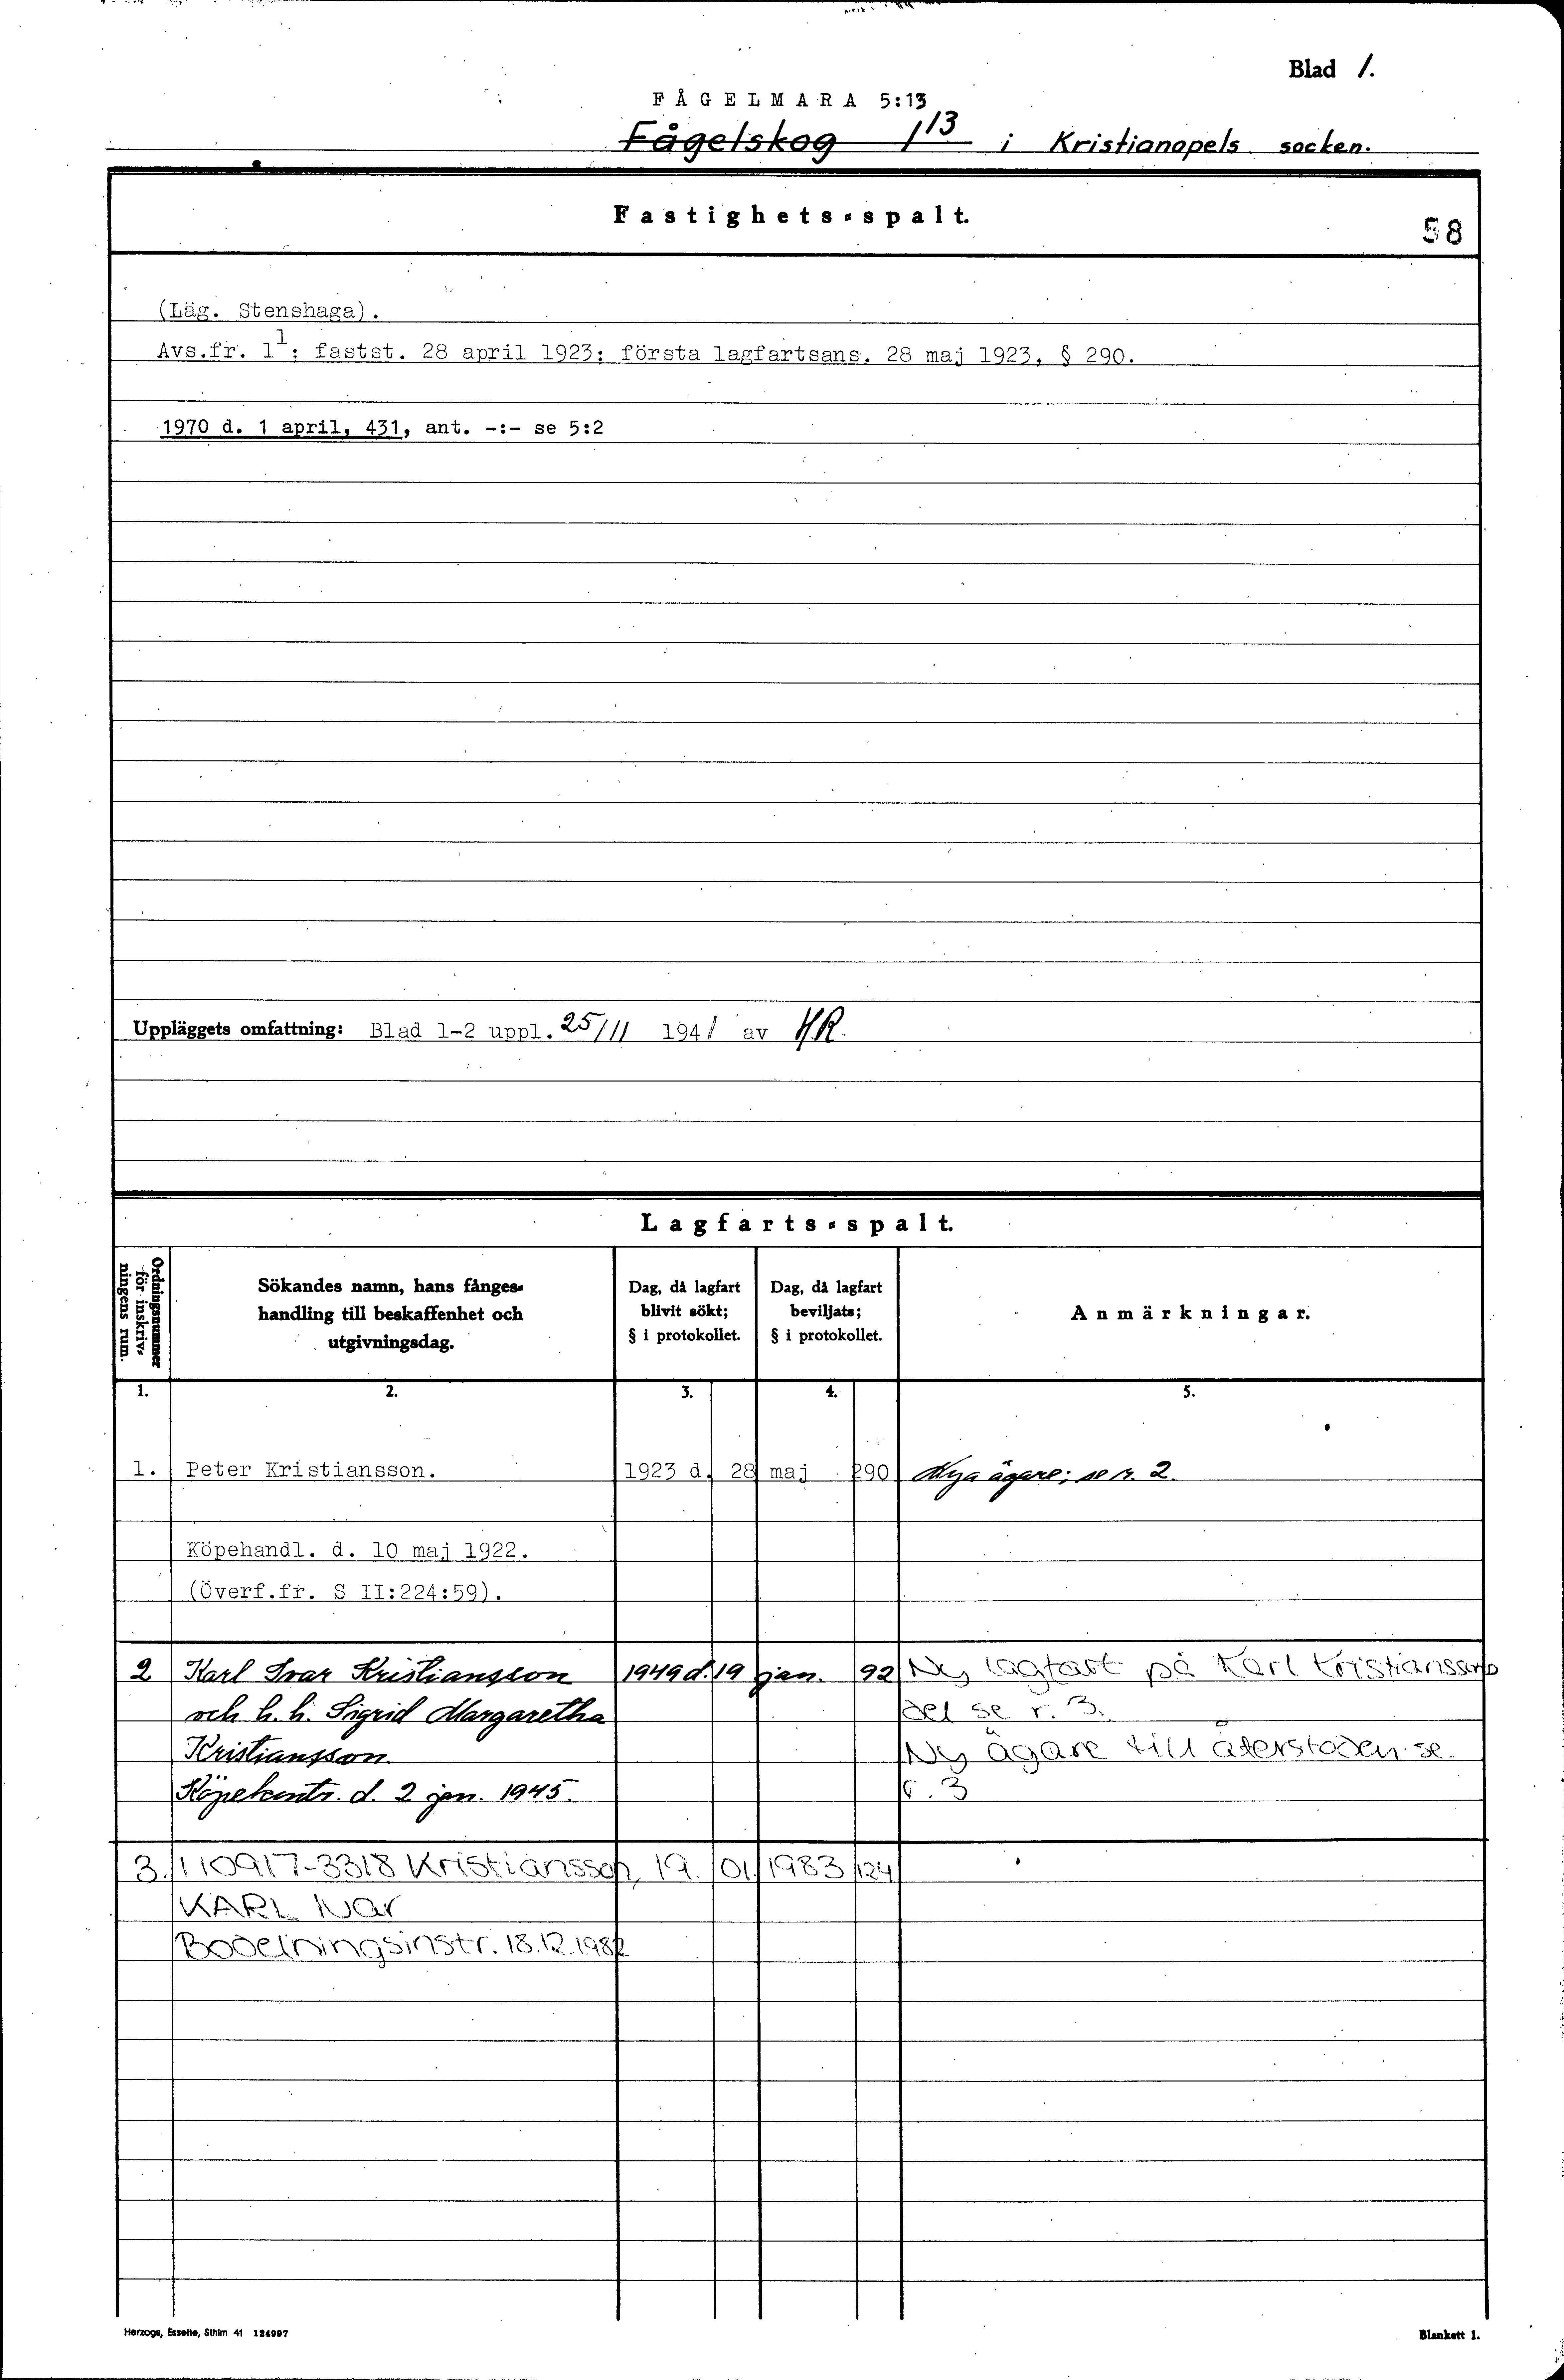 Blad 1.
FÅGELMARA 5:13
Fågelskog 1¹³ i Kristianopels socken.
Fastighets-spalt.
58
(Läg. Stenshaga).
Avs.fr. 1¹: fastst. 28 april 1923: första lagfartsans. 28 maj 1923, § 290.
1970 d. 1 april, 431, ant. -:- se 5:2
Uppläggets omfattning: Blad 1-2 uppl. 25/11 1941 av H.R.
Lagfarts-spalt.
Ordningsnummer för inskrivningens rum.
Sökandes namn, hans fånges-
handling till beskaffenhet och
utgivningsdag.
Dag, då lagfart
blivit sökt;
§ i protokollet.
Dag, då lagfart
beviljats;
§ i protokollet.
Anmärkningar.
1. 2. 3. 4. 5.
1. Peter Kristiansson. 1923 d. 28 maj 290 Nya ägare; se r. 2.
Köpehandl. d. 10 maj 1922.
(Överf.fr. S II:224:59).
2 Karl Ivar Kristiansson 1949 d. 19 jan. 92 Ny lagfart på Karl Kristianssons
och h. h. Sigrid Margaretha del se r. 3.
Kristiansson Ny ägare till återstoden se
Köpekontr. d. 2 jan. 1945. r. 3
3. 110917-3318 Kristiansson, 19. 01. 1983 124
KARL Ivar
Bodelningsinstr. 18.12.1982
Herzogs, Esselte, Sthlm 41 124997
Blankett 1.